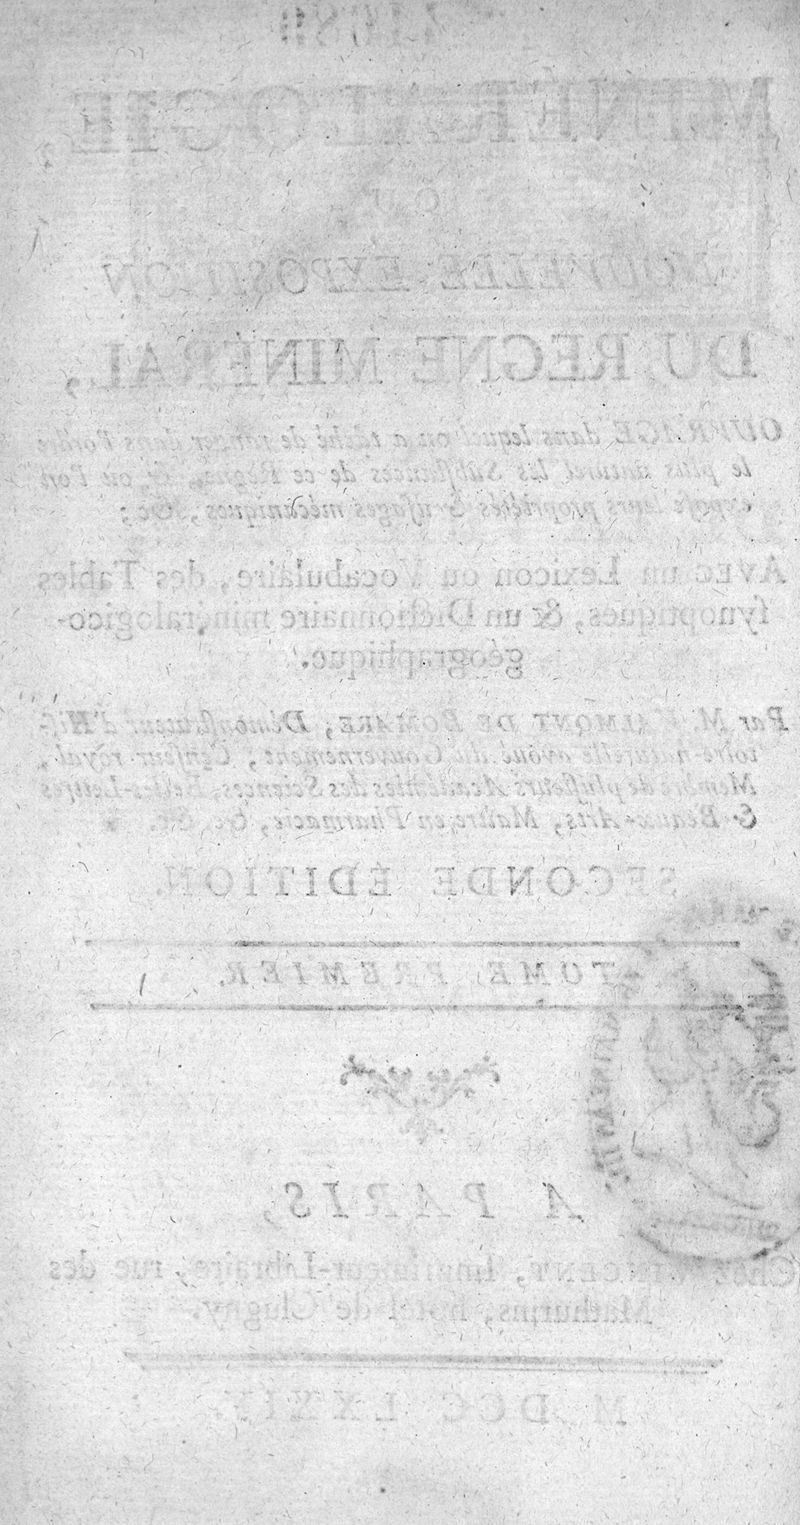 MINÉRALOGIE,
OU
NOUVELLE EXPOSITION
DU REGNE MINÉRAL,
OUVRAGE dans lequel on a tâché de ranger dans l'ordre
le plus naturel les Substances de ce Regne, & où l'on
expose leurs propriétés & usages méchaniques, &c;
AVEC un Lexicon ou Vocabulaire, des Tables
synoptiques, & un Dictionnaire minéralogico-
géographique.
Par M. VALMONT DE BOMARE, Démonstrateur d'His-
toire-naturelle avoué du Gouvernement, Censeur royal,
Membre de plusieurs Académies des Sciences, Belles-Lettres
& Beaux-Arts, Maître en Pharmacie, &c. &c.
SECONDE ÉDITION.
TOME PREMIER.
A PARIS,
Chez VINCENT, Imprimeur-Libraire, rue des
Mathurins, hôtel de Clugny.
M DCC LXXIV.